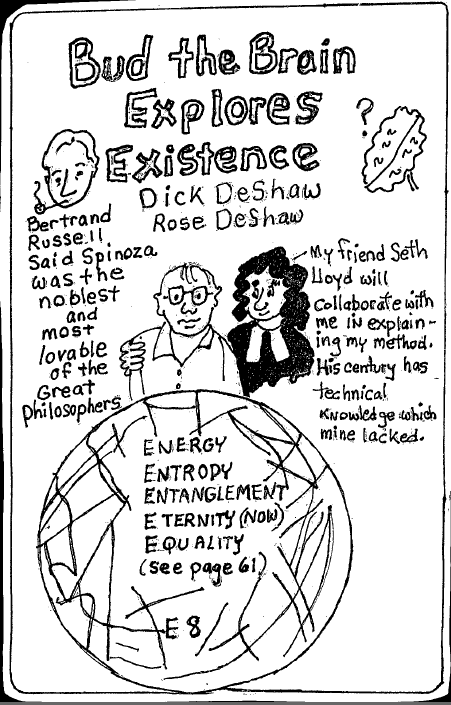 Bud the Brain
Explores
Existence
Dick DeShaw
Rose DeShaw
?
Bertrand
Russell
Said Spinoza
was the
noblest
and
most
lovable
of the
Great
Philosophers
My friend Seth
Lloyd will
collaborate with
me in explain-
ing my method.
His century has
technical
knowledge which
mine lacked.
ENERGY
ENTROPY
ENTANGLEMENT
ETERNITY (NOW)
EQUALITY
(see page 61)
E8